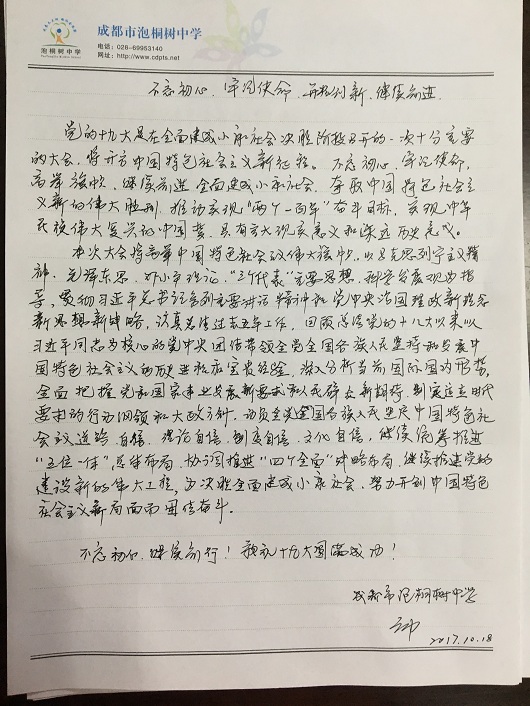 泡桐树中学
成都市泡桐树中学
电话：028-69953140
网址：http://www.cdpts.net
不忘初心，牢记使命，再接创新，继续前进
党的十九大是在全面建成小康社会决胜阶段召开的一次十分重要
的大会，将开启中国特色社会主义新征程。不忘初心，牢记使命，
高举旗帜，继续前进 全面建成小康社会，夺取中国特色社会主
义新的伟大胜利，推动实现“两个一百年”奋斗目标，实现中华
民族伟大复兴的中国梦，具有重大现实意义和深远历史意义。
本次大会将高举中国特色社会主义伟大旗帜，以马克思列宁主义精
毛泽东思，邓小平理论，“三个代表”重要思想，科学发展观为指
导，贯彻习近平总书记系列重要讲话精神和党中央治国理政新理念
新思想新战略，认真总结过去五年工作，回顾总结党的十八大以来以
习近平同志为核心的党中央团结带领全党全国各族人民坚持和发展中
国特色社会主义的历史进程和宝贵经验，深入分析当前国际国内形势，
全面把握党和国家事业发展新要求和人民群众新期待，制定适应时代
要求的行动纲领和大政方针，动员全党全国各族人民坚定中国特色社
会主义道路自信，理论自信，制度自信，文化自信，继续统筹推进
“五位一体”总体布局，协调推进“四个全面”战略布局，继续推进党的
建设新的伟大工程，为决胜全面建成小康社会，努力开创中国特色
社会主义新局面而团结奋斗。
不忘初心，继续前行！预祝十九大圆满成功！
成都市泡桐树中学
2017.10.18